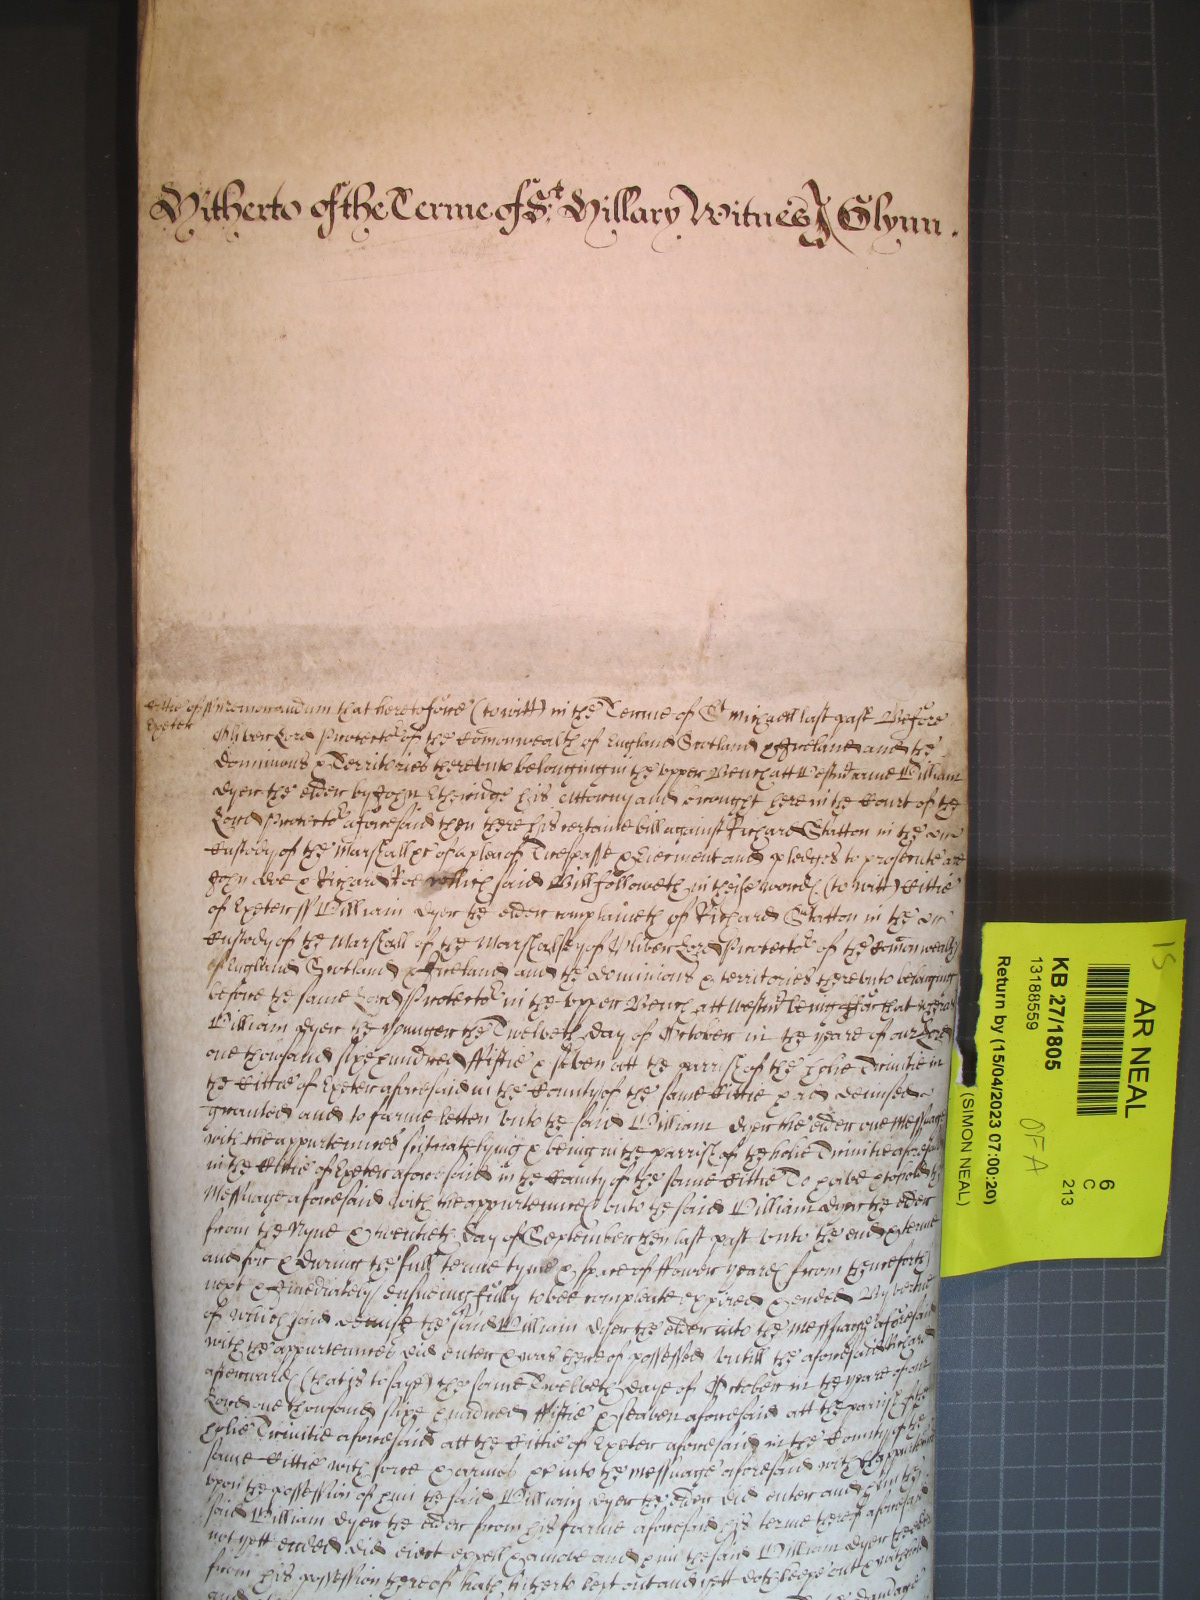 Hitherto of the Terme of St. Hillary Witnes J Glynn.
Cittie of ss Memorandum that heretofore (to witt) in the Terme of St Michaell last past Before
Exeter
Oliver Lord Protector of the Comonwealth of England Scotland & Ireland and the
Dominions & Territories thereunto belonging in the upper Bench att Westmr came William
Dyer the elder by John Etheridge his Attorny and brought here in the Court of the
Lord Protector aforesaid then there his certaine bill against Richard Statton in the
Custody of the Marshall &c of a plea of Trespasse & Eiectment and pledges to prosecute are
John Doe & Richard Roe which said Bill followeth in these words (to witt) Cittie
of Exeter ss William Dyer the elder complaineth of Richard Statton in the
Custody of the Marshall of the Marshallsey of Oliver Lord Protector of the Comonwealth
of England Scotland & Ireland and the dominions & territories thereunto belonging
before the same Lord Protector in the upper Bench att Westmr being for that whereas
William Dyer the younger the Twelveth day of October in the yeare of our Lord
one thousand six hundred Fiftie & seben att the parrish of the holie Trinitie in
the Cittie of Exeter aforesaid in the County of the same Cittie had demised
granted and to farme letten unto the said William Dyer the elder one Messuage
with the appurtennces scituate lying & being in the parrish of the holie Trinitie aforesaid
in the Cittie of Exeter aforesaid in the County of the same Cittie To have & to hold the
Messuage aforesaid with the appurtennces unto the said William Dyer the elder
from the Nyne & twentieth day of September then last past unto the end & terme
and for & during the full terme tyme & space of Fower yeares from thenceforth
next & imediately ensueing fully to bee compleate expired & ended By vertue
of which said demise the said William Dyer the elder into the Messuage aforesaid
with the appurtennces did enter & was thereof possessed untill the aforesaid Richard
afterwards (that is to saye) the same Twelveth daye of October in the yeare of our
Lord one thousand sixe hundred Fiftie & seaben aforesaid att the parish of the
holie Trinitie aforesaid att the Cittie of Exeter aforesaid in the County of the
same Cittie with force & armes &c into the Messuage aforesaid with thappurtennces
upon the possession of him the said William Dyer the elder did enter and him the
said William Dyer the elder from his farme aforesaid his terme thereof aforesaid
not yett ended did eiect expell & amove and him the said William Dyer the elder
from his possession thereof hath hitherto kept out and yett doth keepe out & withhold
and
damage
15
AR NEAL
6
C
213
KB 27/1805
13188559
OFA
Return by (15/04/2023 07:00:20)
(SIMON NEAL)